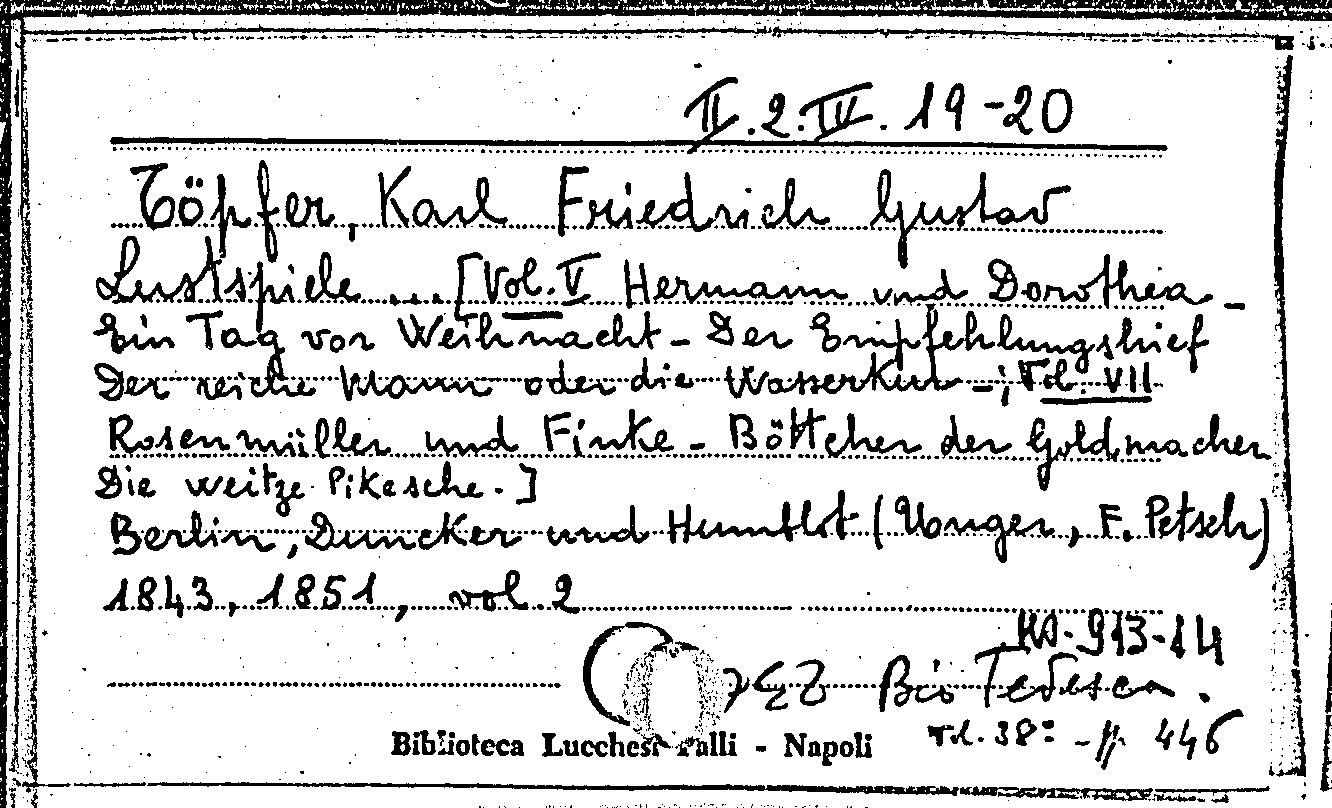 II.2.IV. 19-20
Töpfer, Karl Friedrich Gustav
Lustspiele ... [Vol. V Hermann und Dorothea -
Ein Tag vor Weihnacht - Der Empfehlungsbrief
Der reiche Mann oder die Wasserkur -; Vol. VII
Rosenmüller und Finke - Böttcher der Goldmacher
Die weitze Pikesche.]
Berlin, Duncker und Humblot (Unger, F. Petsch)
1843, 1851, vol. 2
913-14
Bib Tedesca.
Vol. 38: - pp 446
Biblioteca Lucchesi Palli - Napoli